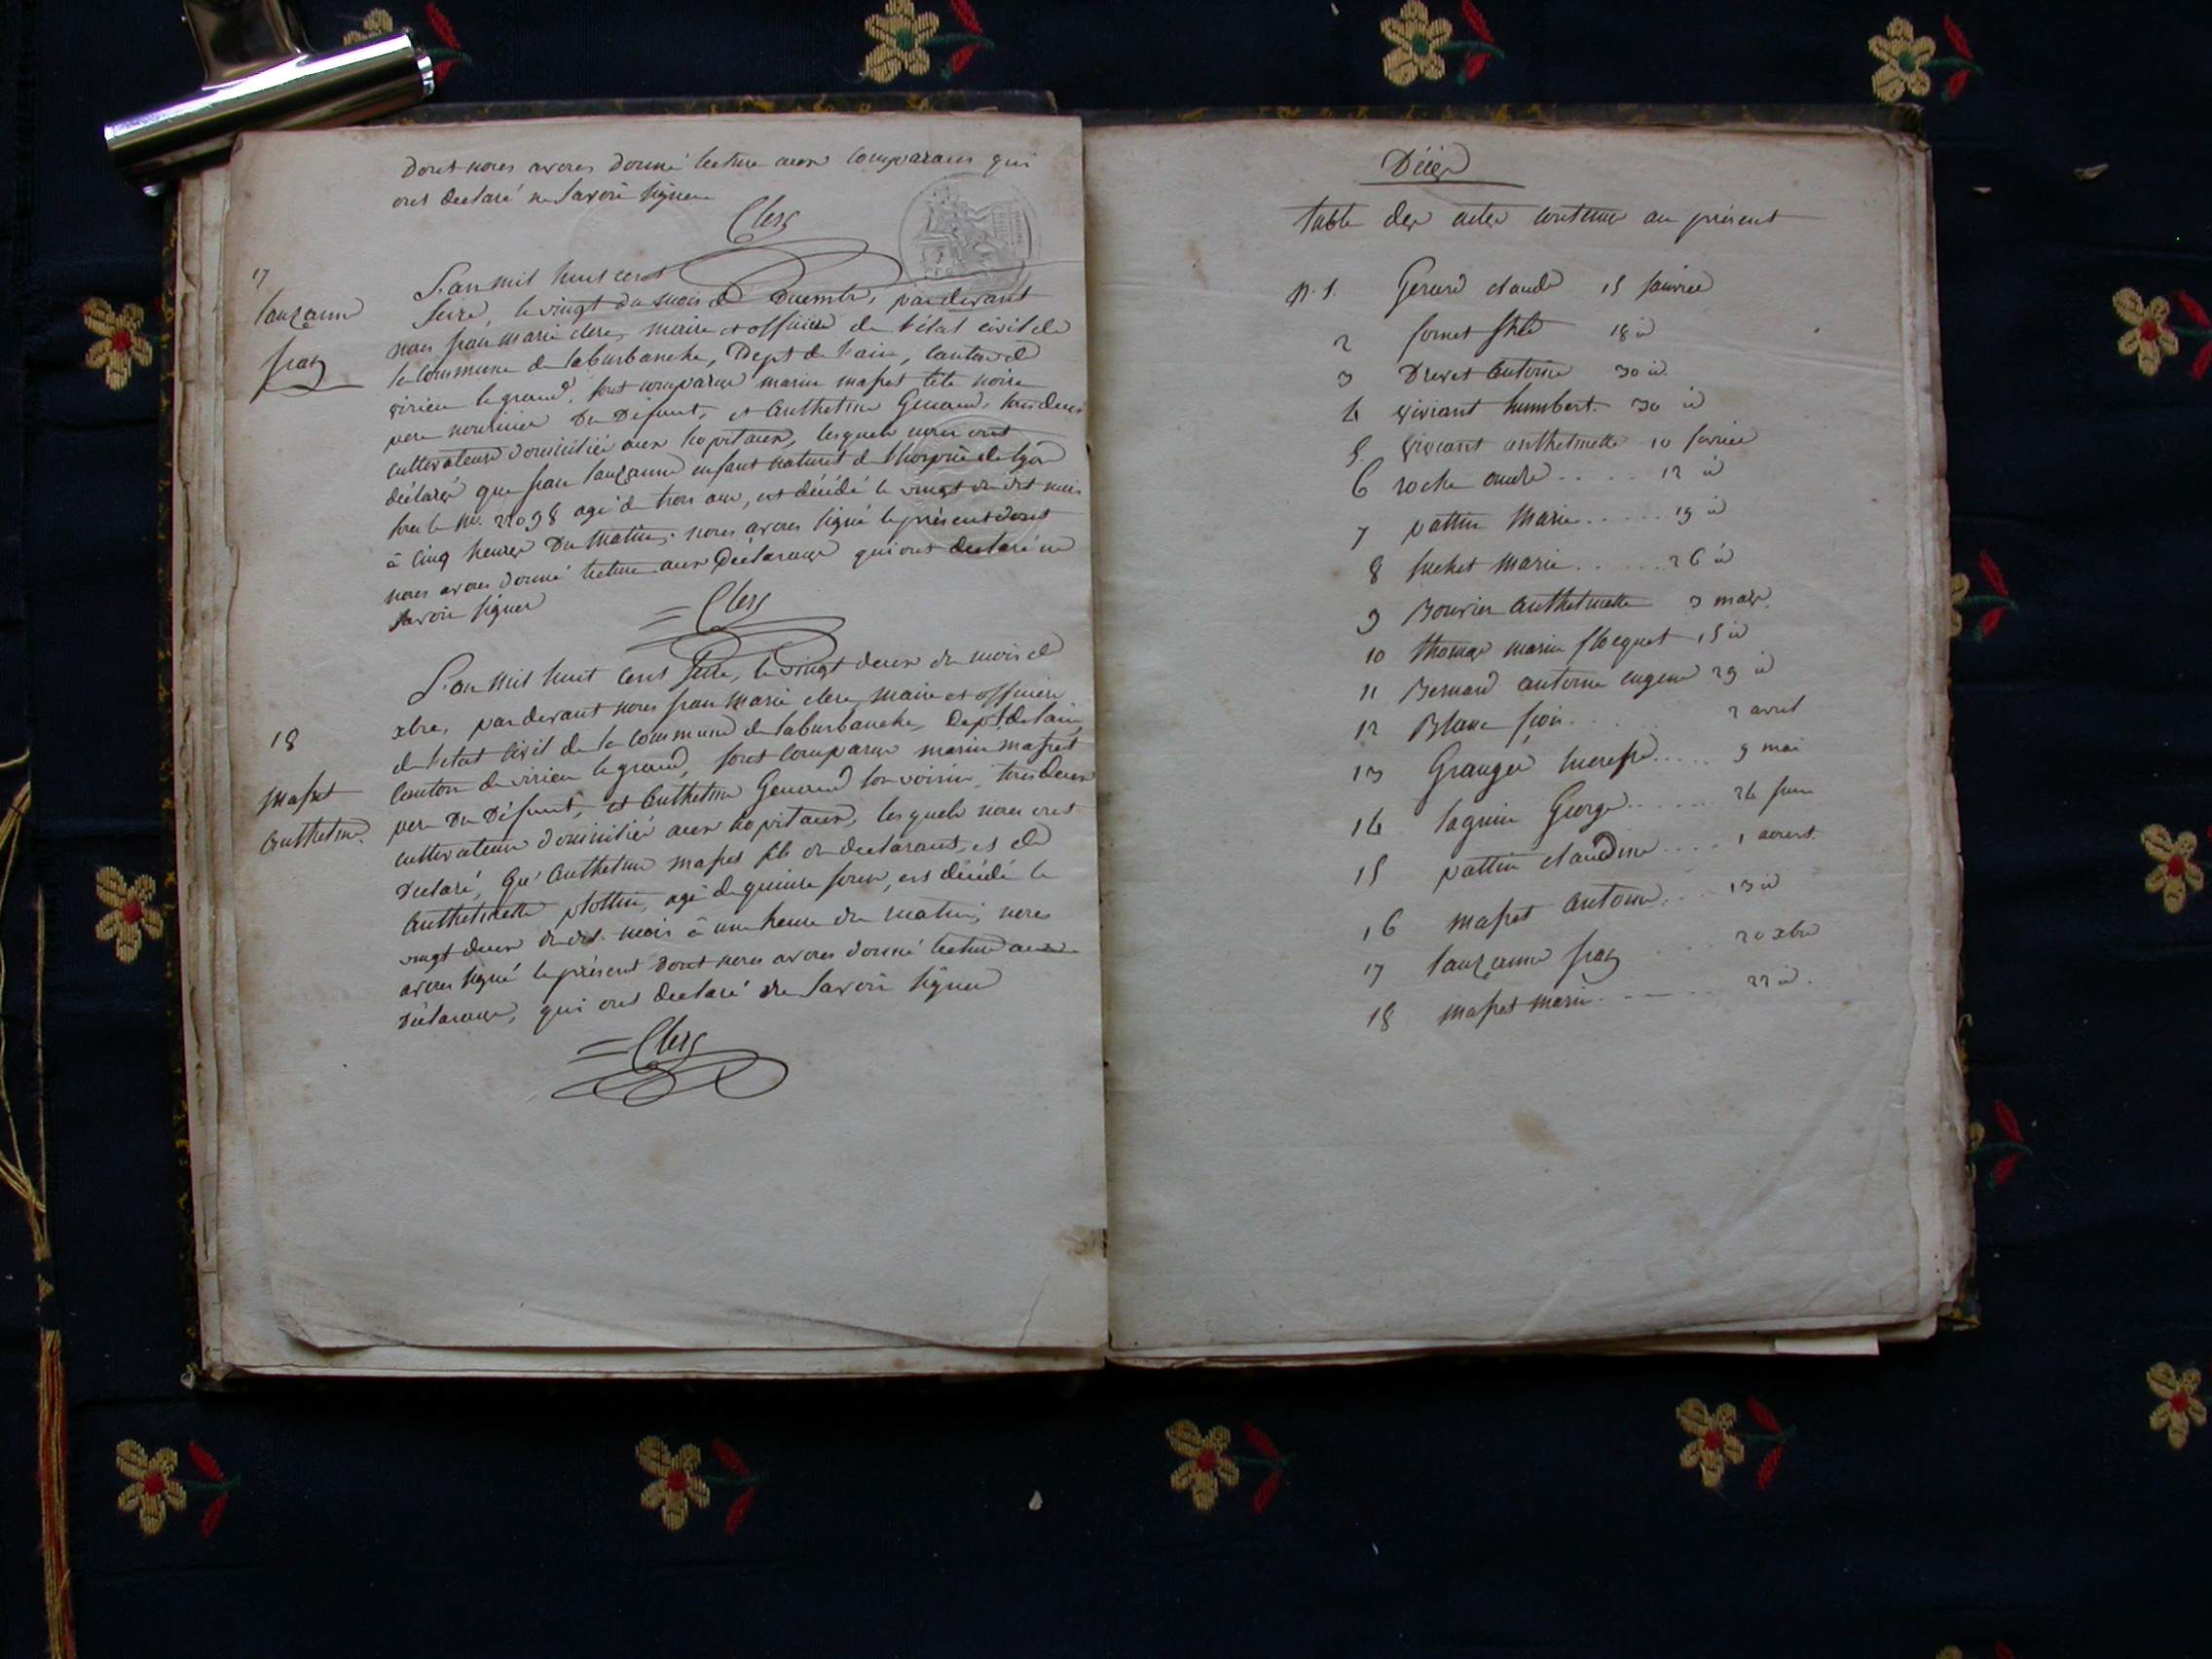 dont nous avons donné lecture aux comparans qui
ont declaré ne savoir signer
Clerc
17
Lauzanne
franç
L'an mil huit cent
seize, le vingt du mois de Decembre, par devant
nous fran marie clerc, maire et officier de l'état civil de
la commune de laburbanche, Dept de l'ain, canton de
virieu le grand, sont comparus marin masset tete noire
pere nourricier du Défunt, et Anthelme Genand, tous deux
cultivateurs domiciliés aux hopitaux, lesquels nous ont
déclaré que fran Lauzanne enfant naturel de l'hospice de Lyon
sous le No. 22098 agé de trois ans, est décédé le vingt du dit mois
à cinq heures du matin; nous avons signé le présent dont
nous avons donné lecture aux Déclarans qui ont declaré ne
savoir signer
Clerc
18
Masset
Anthelme.
L'an mil huit cent seize, le vingt deux du mois de
xbre, par devant nous fran marie clerc, maire et officier
de l'etat civil de la commune de laburbanche, Dept. de l'ain,
canton de virieu le grand, sont comparus marin masset
pere du Défunt, et Anthelme Genand son voisin, tous deux
cultivateurs domiciliés aux hopitaux, lesquels nous ont
declaré, qu'Anthelme masset fils du declarant, et de
Anthelmette plottin, agé de quinze jours, est décédé le
vingt deux du dit mois à une heure du matin; nous
avons signé le présent dont nous avons donné lecture aux
Déclarans, qui ont declaré ne savoir signer
Clerc
Décès
table des actes contenus au présent
N. 1. Gerard claude 15 janvier
2 18 id
3 Drevet Antoine 30 id.
4 Viviant humbert. 30 id
5. Viviant anthelmette 10 fevrier
6 roche andre ..... 12 id
7 pattin Marie ...... 19 id
8 suchet marie ...... 26 id
9 Bouvier Anthelmette 3 mars.
10 thomas marin 15 id
11 Bernard antoine eugene 29 id
12 Blanc 2 avril
13 Granger lucresse ..... 9 mai
14 laguin George ...... 24 juin
15 pattin claudine .... 1 aoust.
16 masset Antoine ... 13 id
17 Lauzanne franç ... 20 xbre
18 masset marin ...... 22 id.